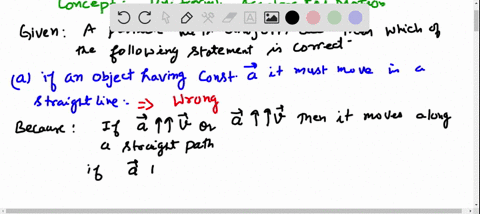 Given: A which of
the following statement is correct-
(a) if an object having const a⃗ it must move in a
straight line:- => Wrong
Because: If a⃗ ↑↑ v⃗ or a⃗ ↑↑ v⃗ Then it moves along
a straight path
if a⃗ |